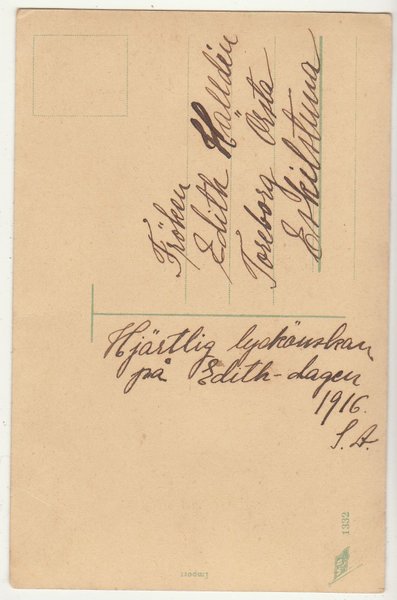 Fröken
Edith Halldin
Toreborg Östa
Eskilstuna
Hjärtlig lyckönskan
på Edith-dagen
1916.
S. A.
1332
Import